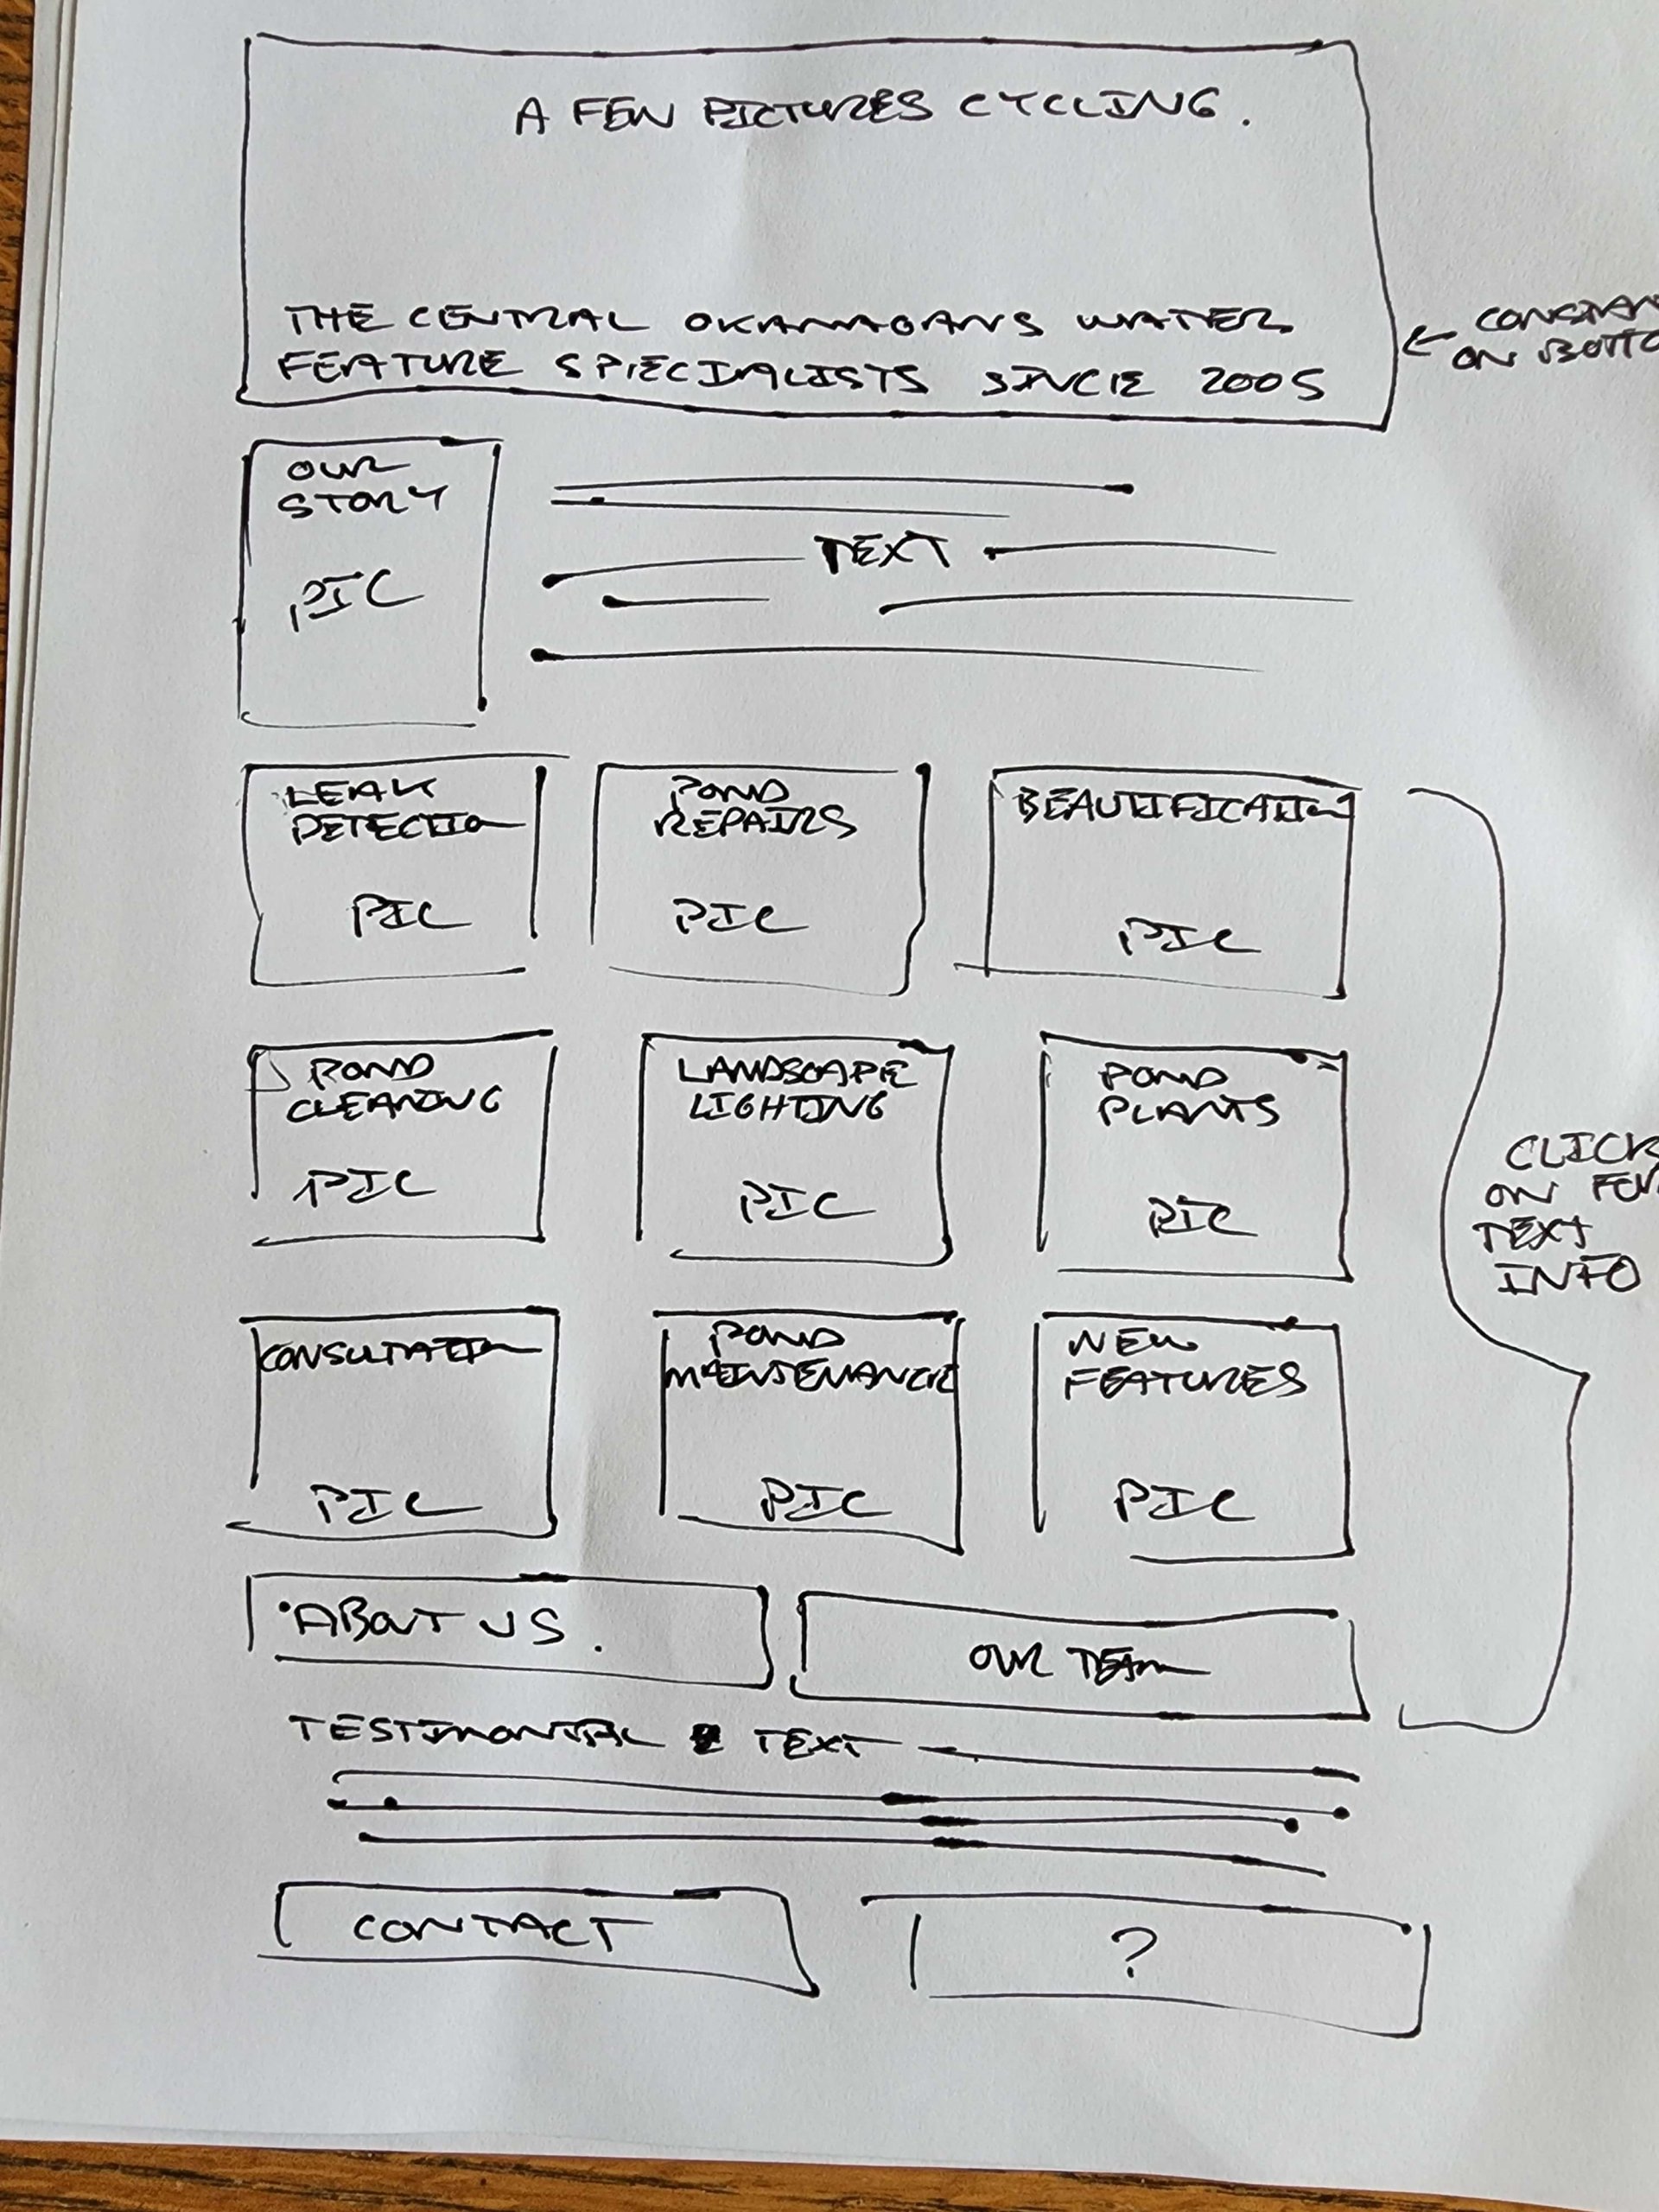 A FEW PICTURES CYCLING.
THE CENTRAL OKANAGANS WATER
FEATURE SPECIALISTS SINCE 2005
← CONSTAN
ON BOTTO
OUR
STORY
PIC
TEXT
LEAK
DETECTION
PIC
POND
REPAIRS
PIC
BEAUTIFICATION
PIC
POND
CLEANING
PIC
LANDSCAPE
LIGHTING
PIC
POND
PLANTS
PIC
CLICK
ON FOR
TEXT
INFO
CONSULTATION
PIC
POND
MAINTENANCE
PIC
NEW
FEATURES
PIC
ABOUT US.
OUR TEAM
TESTIMONIAL TEXT
CONTACT
?